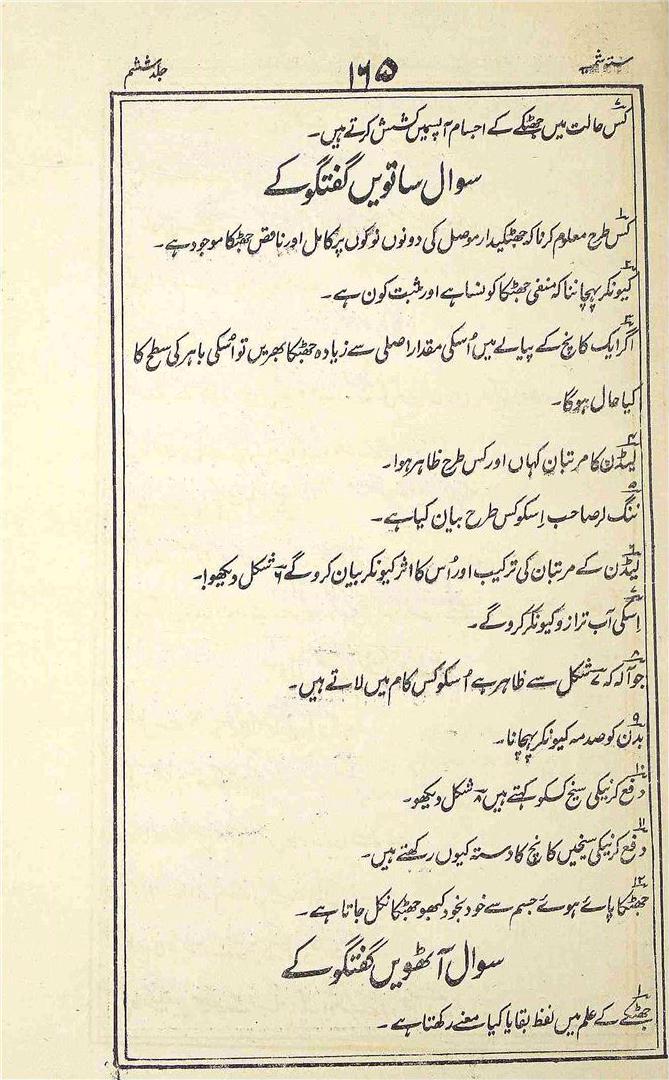 ستہ شمسیہ
۱۶۵
جلد ششم
۷ کس حالت میں جھٹکے کے اجسام آپسمیں کشش کرتے ہیں۔
سوال ساتویں گفتگو کے
۱ کس طرح معلوم کرنا کہ جھٹکیدار موصل کی دونوں نوکوں پر کامل اور ناقص جھٹکا موجود ہے۔
۲ کیونکر پہچاننا کہ منفی جھٹکا کونسا ہے اور مثبت کون ہے۔
۳ اگر ایک کانچ کے پیالے میں اُسکی مقدار اصلی سے زیادہ جھٹکا بھریں تو اُسکی باہر کی سطح کا
کیا حال ہوگا۔
۴ لیڈن کا مرتبان کہاں اور کس طرح ظاہر ہوا۔
۵ ننگ لر صاحب اِسکو کس طرح بیان کیا ہے۔
۶ لیڈن کے مرتبان کی ترکیب اور اُس کا اثر کیونکر بیان کروگے ۶ شکل دیکھو۔
۷ اِسکی آب ترازو کیونکر کروگے۔
۸ جو آلہ کہ ۷ شکل سے ظاہر ہے اُسکو کس کام میں لاتے ہیں۔
۹ بدن کو صدمہ کیونکر پہچانا۔
۱۰ دفع کرنیکی سیخ کسکو کہتے ہیں ۸ شکل دیکھو۔
۱۱ دفع کرنیکی سیخیں کانچ کا دستہ کیوں رکھتے ہیں۔
۱۲ جھٹکا پائے ہوئے جسم سے خود بخود کبھو جھٹکا نکل جاتا ہے۔
سوال آٹھویں گفتگو کے
۱ جھٹکے کے علم میں لفظ بقایا کیا معنے رکھتا ہے۔